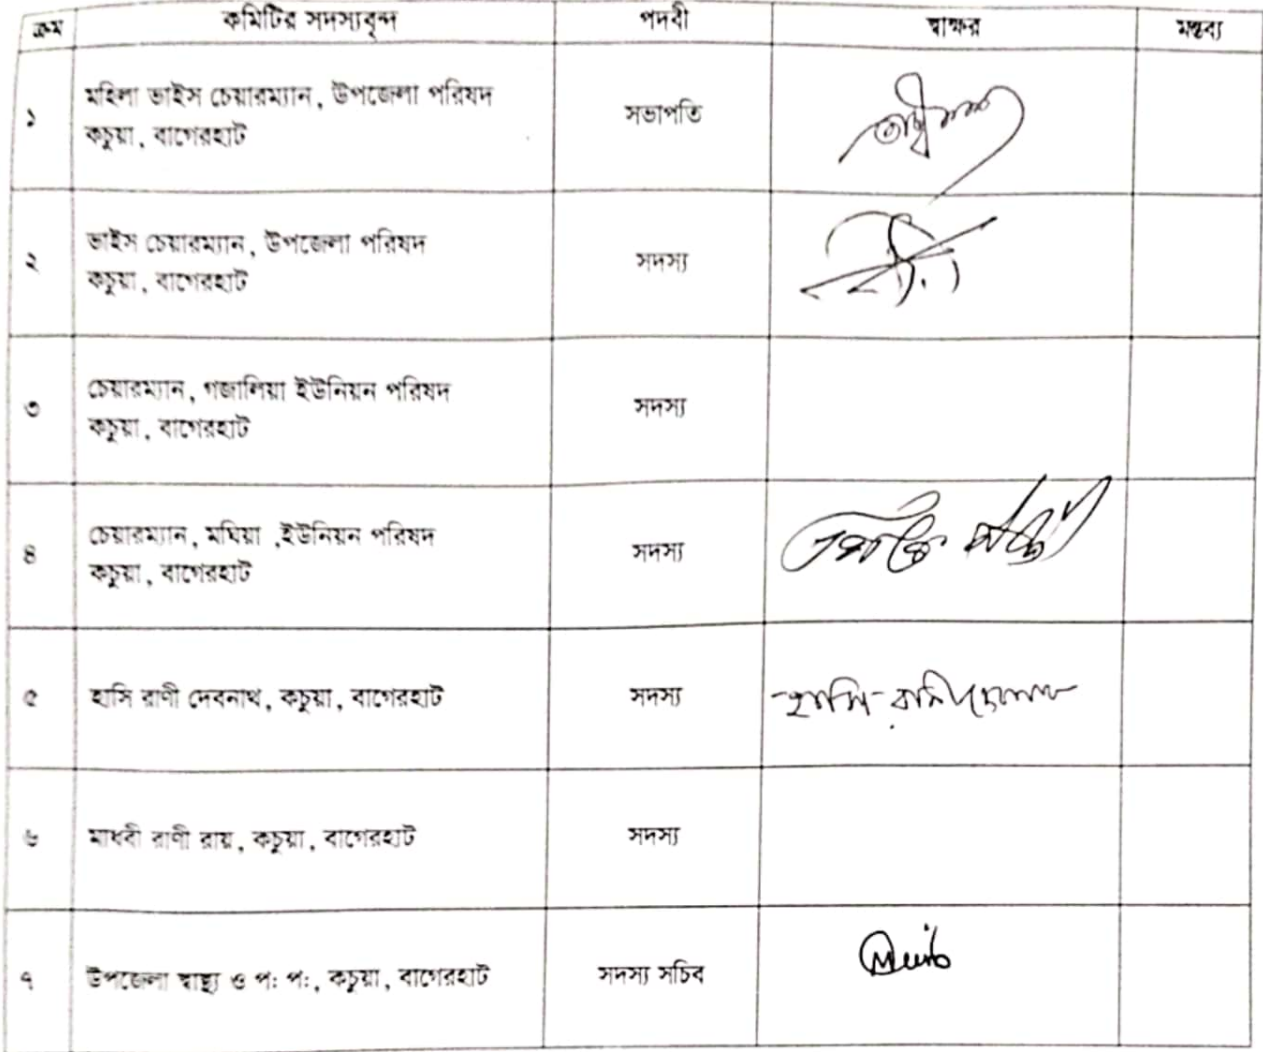 ক্রম কমিটির সদস্যবৃন্দ পদবী স্বাক্ষর মন্তব্য
১ মহিলা ভাইস চেয়ারম্যান, উপজেলা পরিষদ সভাপতি
কচুয়া, বাগেরহাট
২ ভাইস চেয়ারম্যান, উপজেলা পরিষদ সদস্য
কচুয়া, বাগেরহাট
৩ চেয়ারম্যান, গজালিয়া ইউনিয়ন পরিষদ সদস্য
কচুয়া, বাগেরহাট
৪ চেয়ারম্যান, মঘিয়া ,ইউনিয়ন পরিষদ সদস্য
কচুয়া, বাগেরহাট
৫ হাসি রাণী দেবনাথ, কচুয়া, বাগেরহাট সদস্য হাসি রানী
৬ মাধবী রাণী রায়, কচুয়া, বাগেরহাট সদস্য
৭ উপজেলা স্বাস্থ্য ও প: প:, কচুয়া, বাগেরহাট সদস্য সচিব